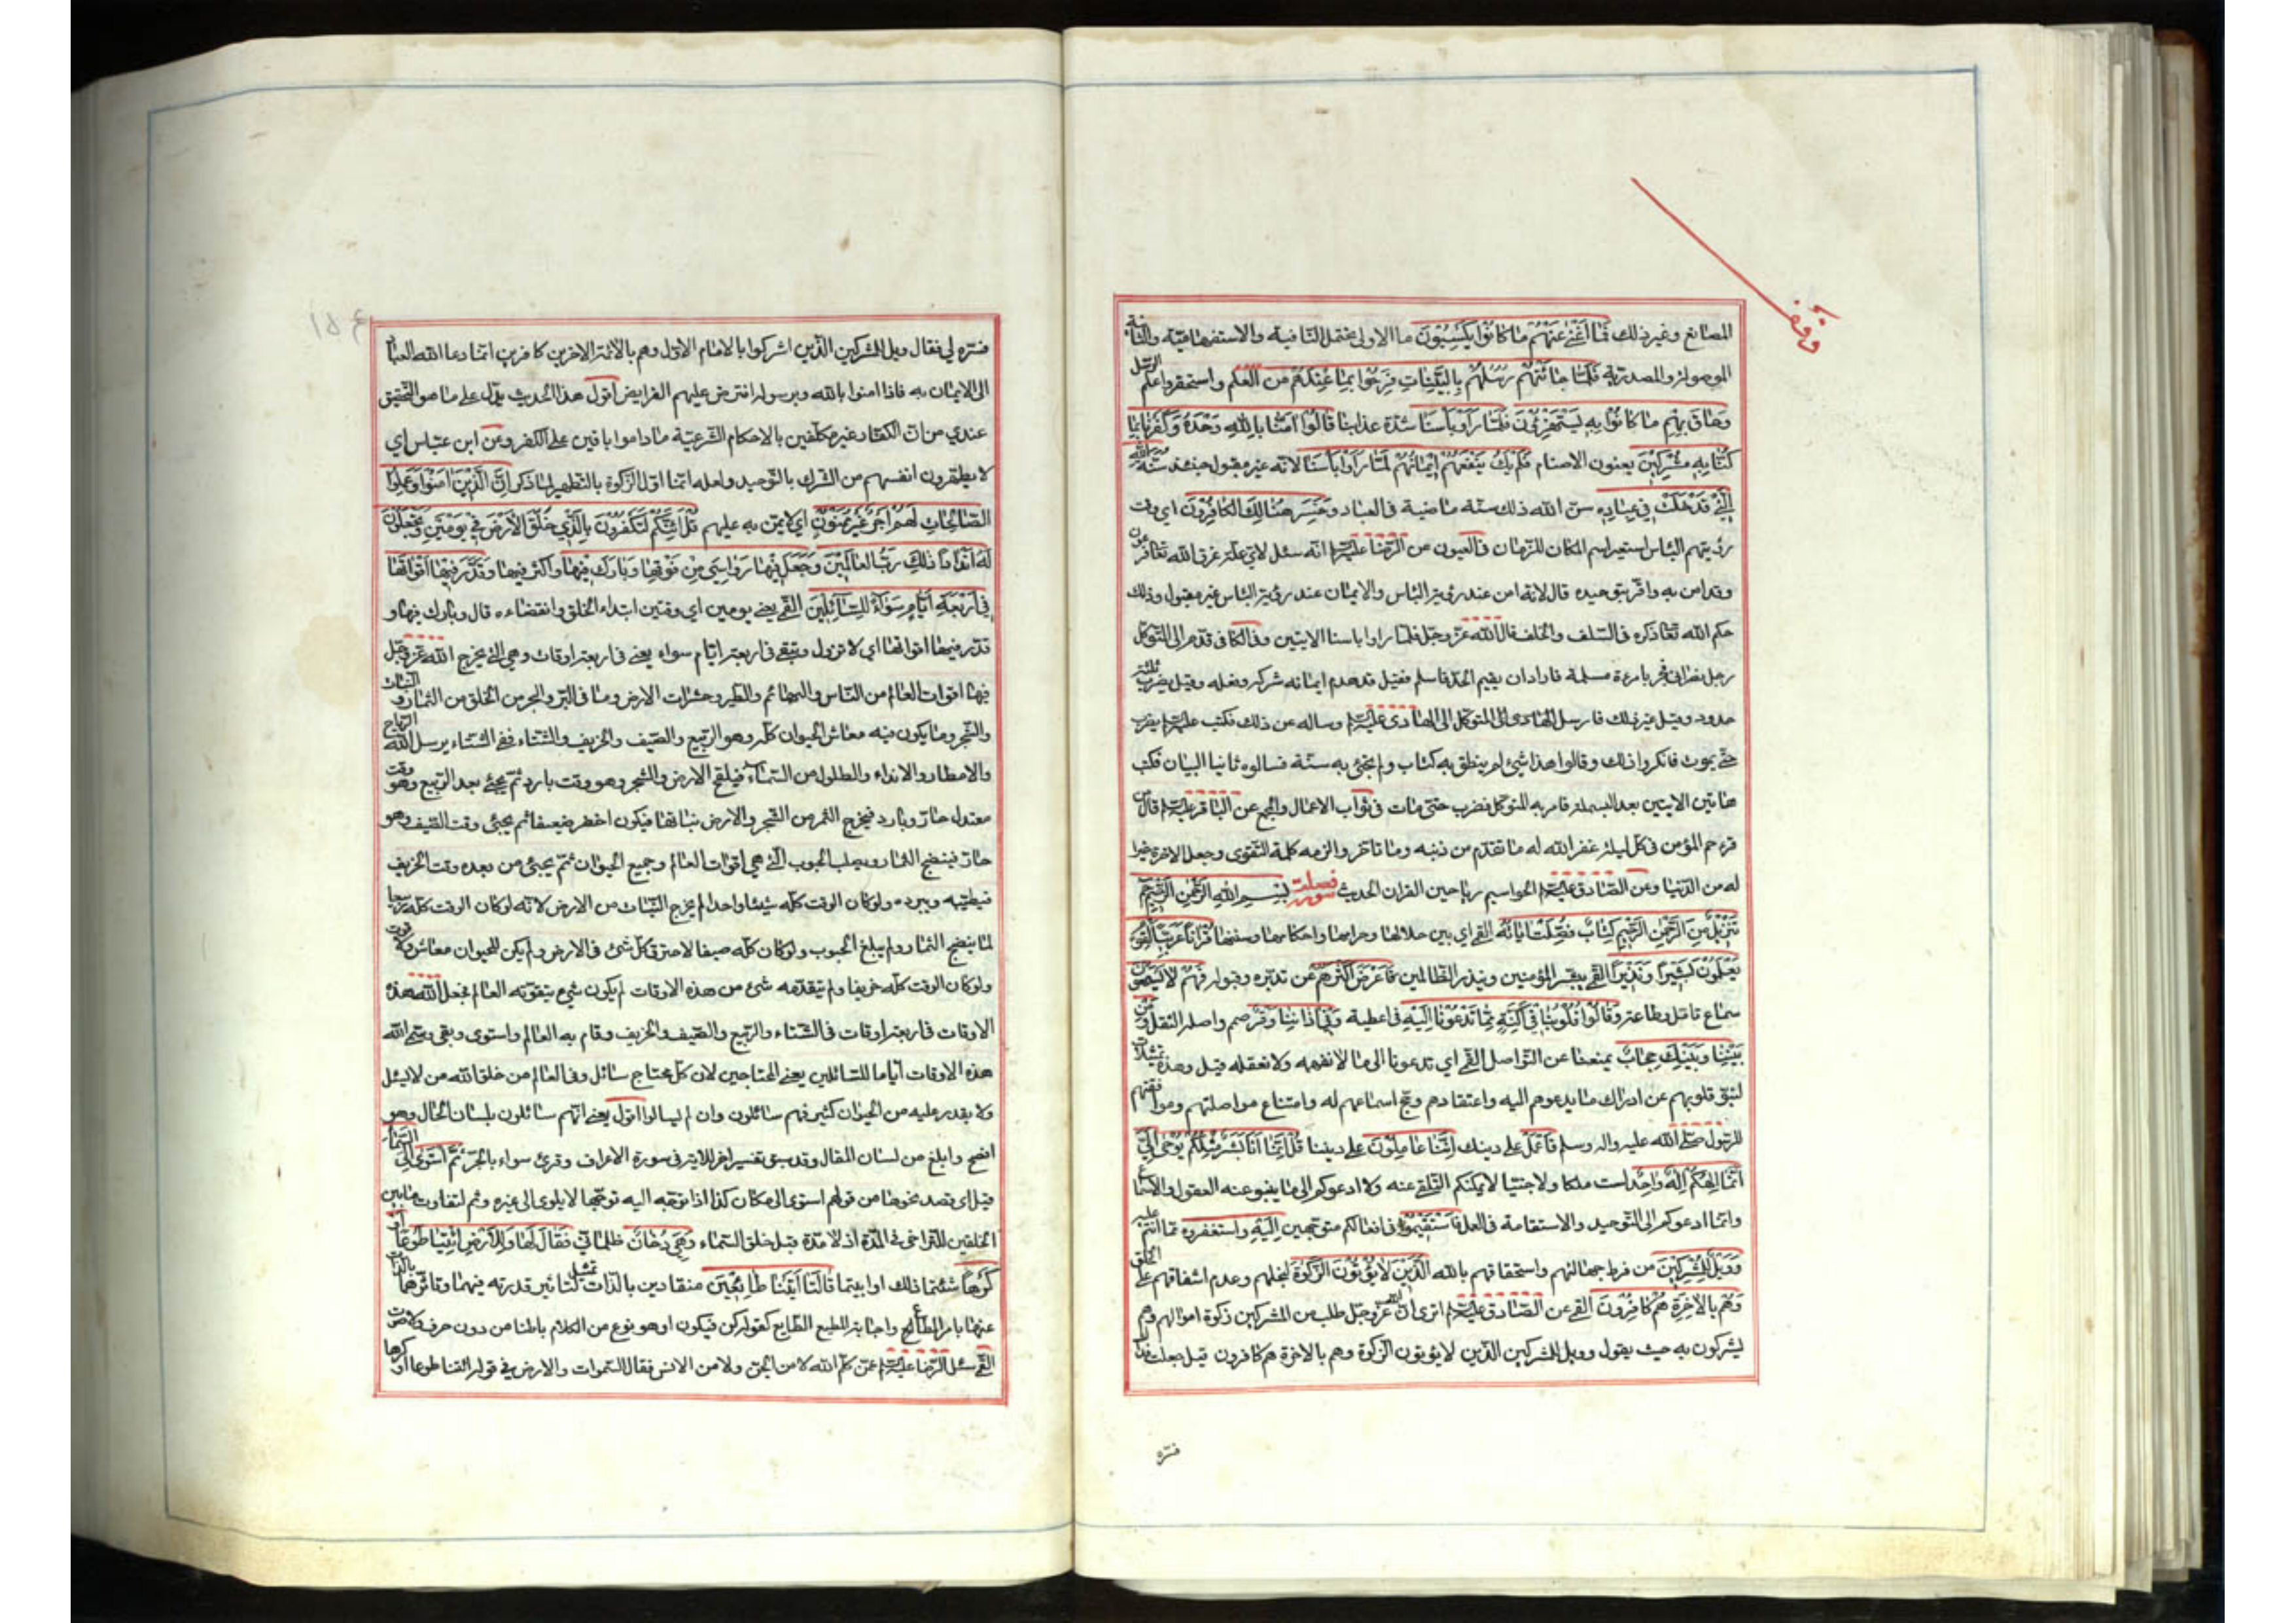 المصانع وغير ذلك فَمَا أَغْنَى عَنْهُمْ مَا كَانُوا يَكْسِبُونَ ما الاولى تحتمل النافية والاستفهامية والثانية
الموصولة والمصدرية فَلَمَّا جَاءَتْهُمْ رُسُلُهُمْ بِالْبَيِّنَاتِ فَرِحُوا بِمَا عِنْدَهُمْ مِنَ الْعِلْمِ واستحقروا علم الرسل
وَحَاقَ بِهِمْ مَا كَانُوا بِهِ يَسْتَهْزِئُونَ فَلَمَّا رَأَوْا بَأْسَنَا شدة عذابنا قَالُوا آمَنَّا بِاللَّهِ وَحْدَهُ وَكَفَرْنَا بِمَا
كُنَّا بِهِ مُشْرِكِينَ يعنون الاصنام فَلَمْ يَكُ يَنْفَعُهُمْ إِيمَانُهُمْ لَمَّا رَأَوْا بَأْسَنَا لانه غير مقبول حينئذ سُنَّةَ اللَّهِ
الَّتِي قَدْ خَلَتْ فِي عِبَادِهِ سن الله ذلك سنة ماضية في العباد وَخَسِرَ هُنَالِكَ الْكَافِرُونَ اي وقت
رؤيتهم البأس استعير اسم المكان للزمان في العيون من الرضا عليه السلام انه سئل لاي علة غرق الله تعالى فرعون
وقد امن به واقر بتوحيده قال لانه امن عند رؤية الباس والايمان عند رؤية الباس غير مقبول وذلك
حكم الله تعالى ذكره في السلف والخلف قال الله عز وجل فلما راوا باسنا الايتين وفي الكافي قدم الى المتوكل
رجل نصراني فجر بامرءة مسلمة فاراد ان يقيم الحد فاسلم فقيل قد هدم ايمانه شركه وفعله وقيل يضرب ثلثة
حدود وقيل غير ذلك فارسل المتوكل الى الهادي عليه السلام وساله عن ذلك فكتب عليه السلام يضرب
حتى يموت فانكروا ذلك وقالوا هذا شئ لم ينطق به كتاب ولم يجئ به سنة فسالوه ثانيا البيان فكتب
هاتين الايتين بعد البسملة فامر به المتوكل فضرب حتى مات في ثواب الاعمال والمجمع عن الباقر عليه السلام قال من
قرء حم المؤمن في كل ليلة غفر الله له ما تقدم من ذنبه وما تاخر والزمه كلمة التقوى وجعل الاخرة خيرا
له من الدنيا وعن الصادق عليه السلام الحواميم رياحين القران الحديث سورة فصلت بِسْمِ اللَّهِ الرَّحْمٰنِ الرَّحِيمِ
تَنْزِيلٌ مِنَ الرَّحْمٰنِ الرَّحِيمِ كِتَابٌ فُصِّلَتْ آيَاتُهُ القمي اي بين حلالها وحرامها واحكامها وسننها قُرْآنًا عَرَبِيًّا لِقَوْمٍ
يَعْلَمُونَ بَشِيرًا وَنَذِيرًا القمي يبشر المؤمنين وينذر الظالمين فَأَعْرَضَ أَكْثَرُهُمْ عن تدبره وقبوله فَهُمْ لَا يَسْمَعُونَ
سماع تامل وطاعة وَقَالُوا قُلُوبُنَا فِي أَكِنَّةٍ مِمَّا تَدْعُونَا إِلَيْهِ في اغطية وَفِي آذَانِنَا وَقْرٌ صمم واصله الثقل وَمِنْ
بَيْنِنَا وَبَيْنِكَ حِجَابٌ يمنعنا عن التواصل القمي اي تدعونا الى ما لا نفهمه ولا نعقله قيل وهذه تمثيلات
لنبو قلوبهم عن ادراك ما يدعوهم اليه واعتقادهم ومج اسماعهم له وامتناع مواصلتهم وموافقتهم
للرسول صلى الله عليه واله وسلم فَاعْمَلْ على دينك إِنَّنَا عَامِلُونَ على ديننا قُلْ إِنَّمَا أَنَا بَشَرٌ مِثْلُكُمْ يُوحَى إِلَيَّ
أَنَّمَا إِلٰهُكُمْ إِلٰهٌ وَاحِدٌ لست ملكا ولا جنيا لا يمكنكم التلقي عنه ولا ادعوكم الى ما ينبو عنه العقول والاسماع
وانما ادعوكم الى التوحيد والاستقامة في العمل فَاسْتَقِيمُوا في افعالكم متوجهين إِلَيْهِ وَاسْتَغْفِرُوهُ مما انتم عليه
وَوَيْلٌ لِلْمُشْرِكِينَ من فرط جهالتهم واستخفافهم بالله الَّذِينَ لَا يُؤْتُونَ الزَّكٰوةَ لبخلهم وعدم اشفاقهم على الخلق
وَهُمْ بِالْآخِرَةِ هُمْ كَافِرُونَ القمي عن الصادق عليه السلام اترى ان الله عز وجل طلب من المشركين زكوة اموالهم وهم
يشركون به حيث يقول وويل للمشركين الذين لا يؤتون الزكوة وهم بالاخرة هم كافرون قيل جعلت فداك
فسره
فسره لي فقال ويل للمشركين الذين اشركوا بالامام الاول وهم بالائمة الاخرين كافرين انما دعا الله العباد
الى الايمان به فاذا امنوا بالله وبرسوله افترض عليهم الفرايض اقول هذا الحديث يدل على ما هو التحقيق
عندي من ان الكفار غير مكلفين بالاحكام الشرعية ما داموا باقين على الكفر وعن ابن عباس اي
لا يطهرون انفسهم من الشرك بالتوحيد ولعله انما اول الزكوة بالتطهير لما ذكر إِنَّ الَّذِينَ آمَنُوا وَعَمِلُوا
الصَّالِحَاتِ لَهُمْ أَجْرٌ غَيْرُ مَمْنُونٍ اي لا يمن به عليهم قُلْ أَئِنَّكُمْ لَتَكْفُرُونَ بِالَّذِي خَلَقَ الْأَرْضَ فِي يَوْمَيْنِ وَتَجْعَلُونَ
لَهُ أَنْدَادًا ذٰلِكَ رَبُّ الْعَالَمِينَ وَجَعَلَ فِيهَا رَوَاسِيَ مِنْ فَوْقِهَا وَبَارَكَ فِيهَا واكثر خيرها وَقَدَّرَ فِيهَا أَقْوَاتَهَا
فِي أَرْبَعَةِ أَيَّامٍ سَوَاءً لِلسَّائِلِينَ القمي يعني يومين اي وقتين ابتداء الخلق وانقضاءه قال وبارك فيها و
قدر فيها اقواتها اي لا تزول وتبقى في اربعة ايام سواء يعني في اربعة اوقات وهي التي يخرج الله عز وجل
فيها اقوات العالم من الناس والبهائم والطير وحشرات الارض وما في البر والبحر من الخلق من الثمار والنبات
والشجر وما يكون فيه معاش الحيوان كله وهو الربيع والصيف والخريف والشتاء ففي الشتاء يرسل الله الرياح
والامطار والانداء والطلول من السماء فيلقح الارض والشجر وهو وقت بارد ثم يجئ بعد الربيع وهو وقت
معتدل حار وبارد فيخرج الثمر من الشجر والارض نباتها فيكون اخضر ضعيفا ثم يجئ وقت الصيف وهو
حار فينضج الثمار ويصلب الحبوب التي هي اقوات العالم وجميع الحيوان ثم يجئ من بعده وقت الخريف
فيطيبه ويبرده ولو كان الوقت كله شيئا واحدا لم يخرج النبات من الارض لانه لو كان الوقت كله ربيعا
لما ينضج الثمار ولم يبلغ الحبوب ولو كان كله صيفا لاحترق كل شئ في الارض ولم يكن للحيوان معاش ولا قوت
ولو كان الوقت كله خريفا ولم يتقدمه شئ من هذه الاوقات لم يكون شئ يتقوته العالم فجعل الله هذه
الاوقات في اربعة اوقات في الشتاء والربيع والصيف والخريف وقام به العالم واستوى وبقي وسمى الله
هذه الاوقات اياما للسائلين يعني المحتاجين لان كل محتاج سائل وفي العالم من خلق الله من لا يسئل
ولا يقدر عليه من الحيوان كثير فهم سائلون وان لم يسالوا اقول يعني انهم سائلون بلسان الحال وهو
افصح وابلغ من لسان المقال وقد سبق تفسير اخر للاية في سورة الاعراف وقرئ سواء بالجر ثُمَّ اسْتَوَى إِلَى السَّمَاءِ
قيل اي قصد نحوها من قولهم استوى الى مكان كذا اذا توجه اليه توجها لا يلوى الى غيره وثم لتفاوت ما بين
الخلقين لا للتراخي في المدة اذ لا مدة قبل خلق السماء وَهِيَ دُخَانٌ ظلماني فَقَالَ لَهَا وَلِلْأَرْضِ ائْتِيَا طَوْعًا أَوْ
كَرْهًا شئتما ذلك او ابيتما قَالَتَا أَتَيْنَا طَائِعِينَ منقادين بالذات تمثيل لتاثير قدرته فيهما وتاثرهما بالذات
عنها بامر المطاع واجابة المطيع الطايع كقوله كن فيكون او هو نوع من الكلام باطنا من دون حرف ولا صوت
القمي سئل الرضا عليه السلام عمن كلم الله لا من الجن ولا من الانس فقال السموات والارض في قوله ائتيا طوعا او كرها